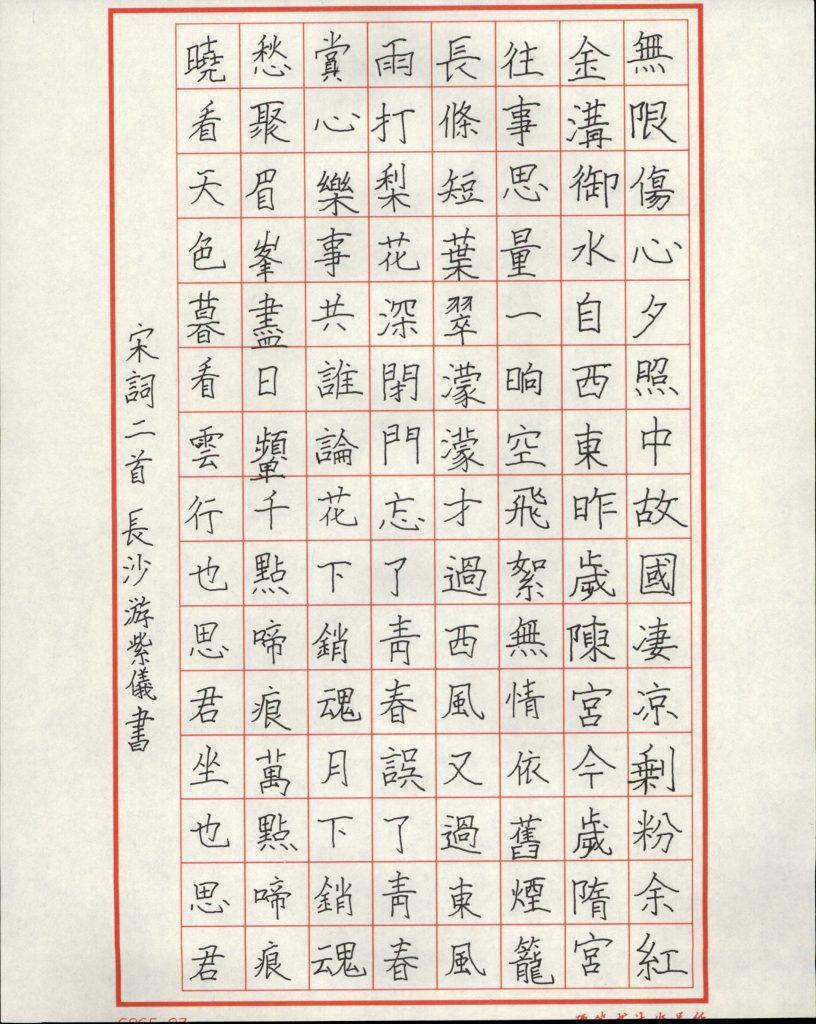 無限傷心夕照中故國凄凉剩粉余紅
金溝御水自西東昨歲陳宮今歲隋宮
往事思量一晌空飛絮無情依舊煙籠
長條短葉翠濛濛才過西風又過東風
雨打梨花深閉門忘了青春誤了青春
賞心樂事共誰論花下銷魂月下銷魂
愁聚眉峯盡日顰千點啼痕萬點啼痕
曉看天色暮看雲行也思君坐也思君
宋詞二首 長沙游紫儀書